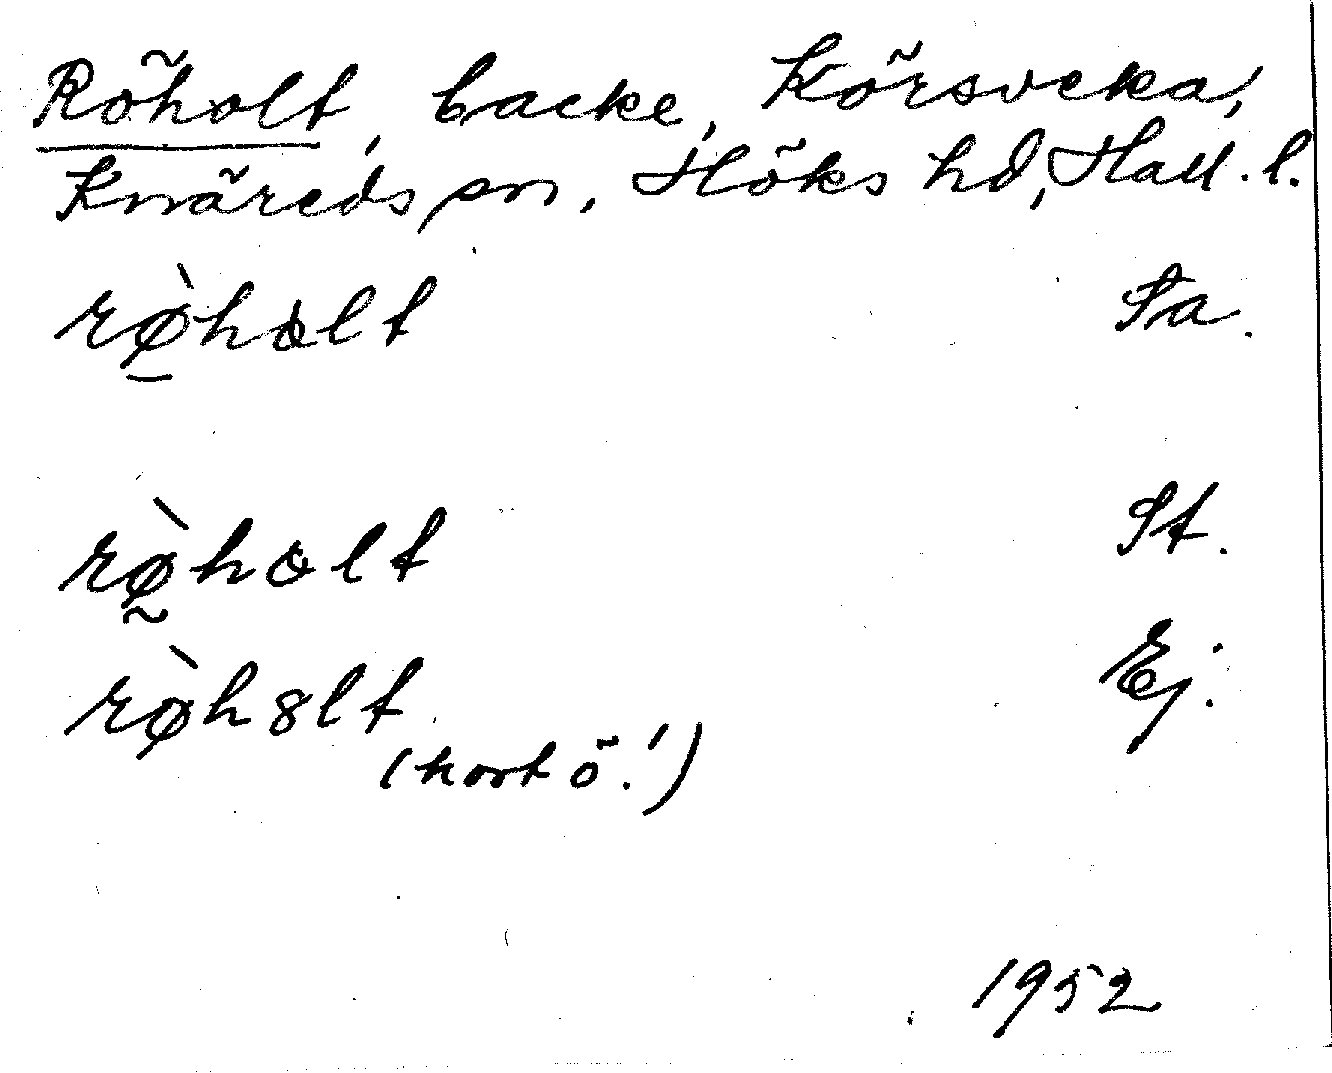 Röholt, backe, Körsveka,
Knäreds sn, Höks hd, Hall. l.
rø̱̀hɷlt Sa.
rø̰̀hɷlt St.
rø̀h8lt Ej.
(kort ö!)
1952